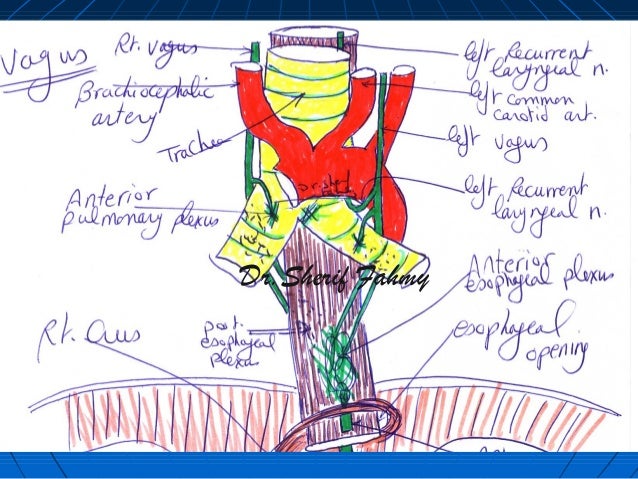 Vagus
Rt. vagus
left Recurrent
laryngeal n.
Brachiocephalic
artery
left common
carotid art.
Trachea
left vagus
Dr. Sherif
Fahmy
Anterior
pulmonary plexus
left Recurrent
laryngeal n.
Dr. Sherif Fahmy
Anterior
esophageal plexus
Rt. Crus
post.
esophageal
plexus
esophageal
opening